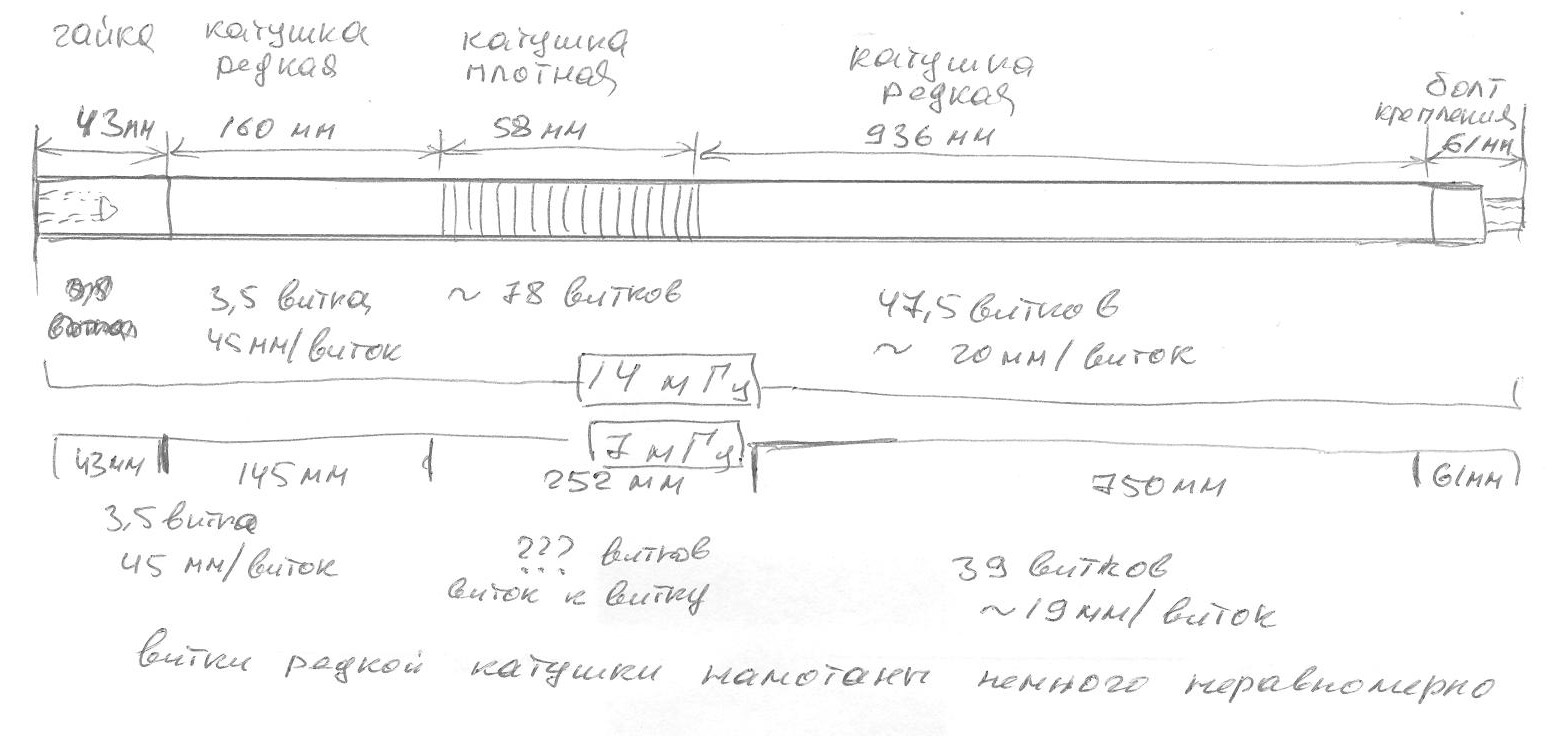 гайка
катушка
редкая
катушка
плотная
катушка
редкая
болт
крепления
43мм
160 мм
58 мм
936 мм
61мм
3,5 витка
45мм/виток
~ 78 витков
47,5 витков
~ 20мм/виток
14 мГц
7 мГц
43мм
145мм
252 мм
750мм
61мм
3,5 витка
45 мм/виток
??? витков
виток к витку
39 витков
~19мм/виток
витки редкой катушки намотаны немного неравномерно